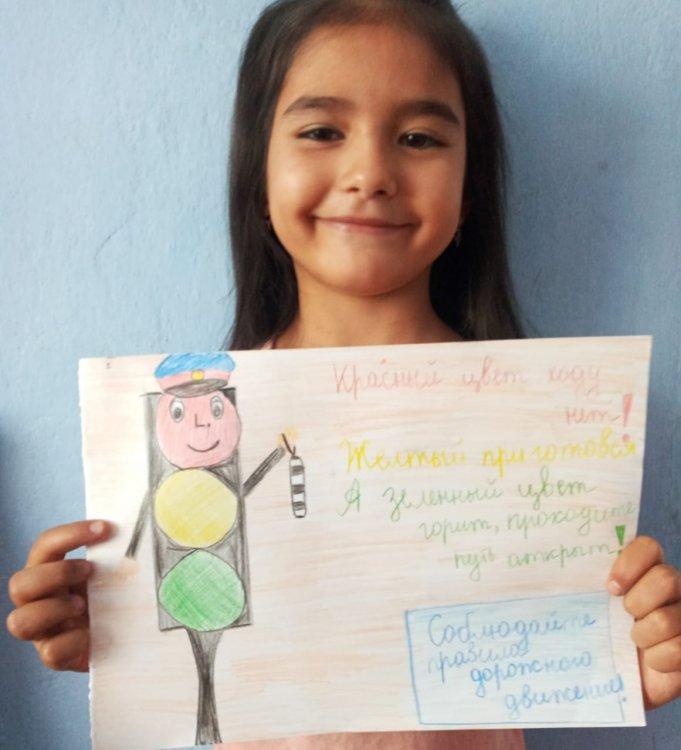 Красный цвет ходу
нет!
Желтый приготовься
А зеленный цвет
горит, проходите
путь открыт!
Соблюдайте
правила
дорожного
движение!